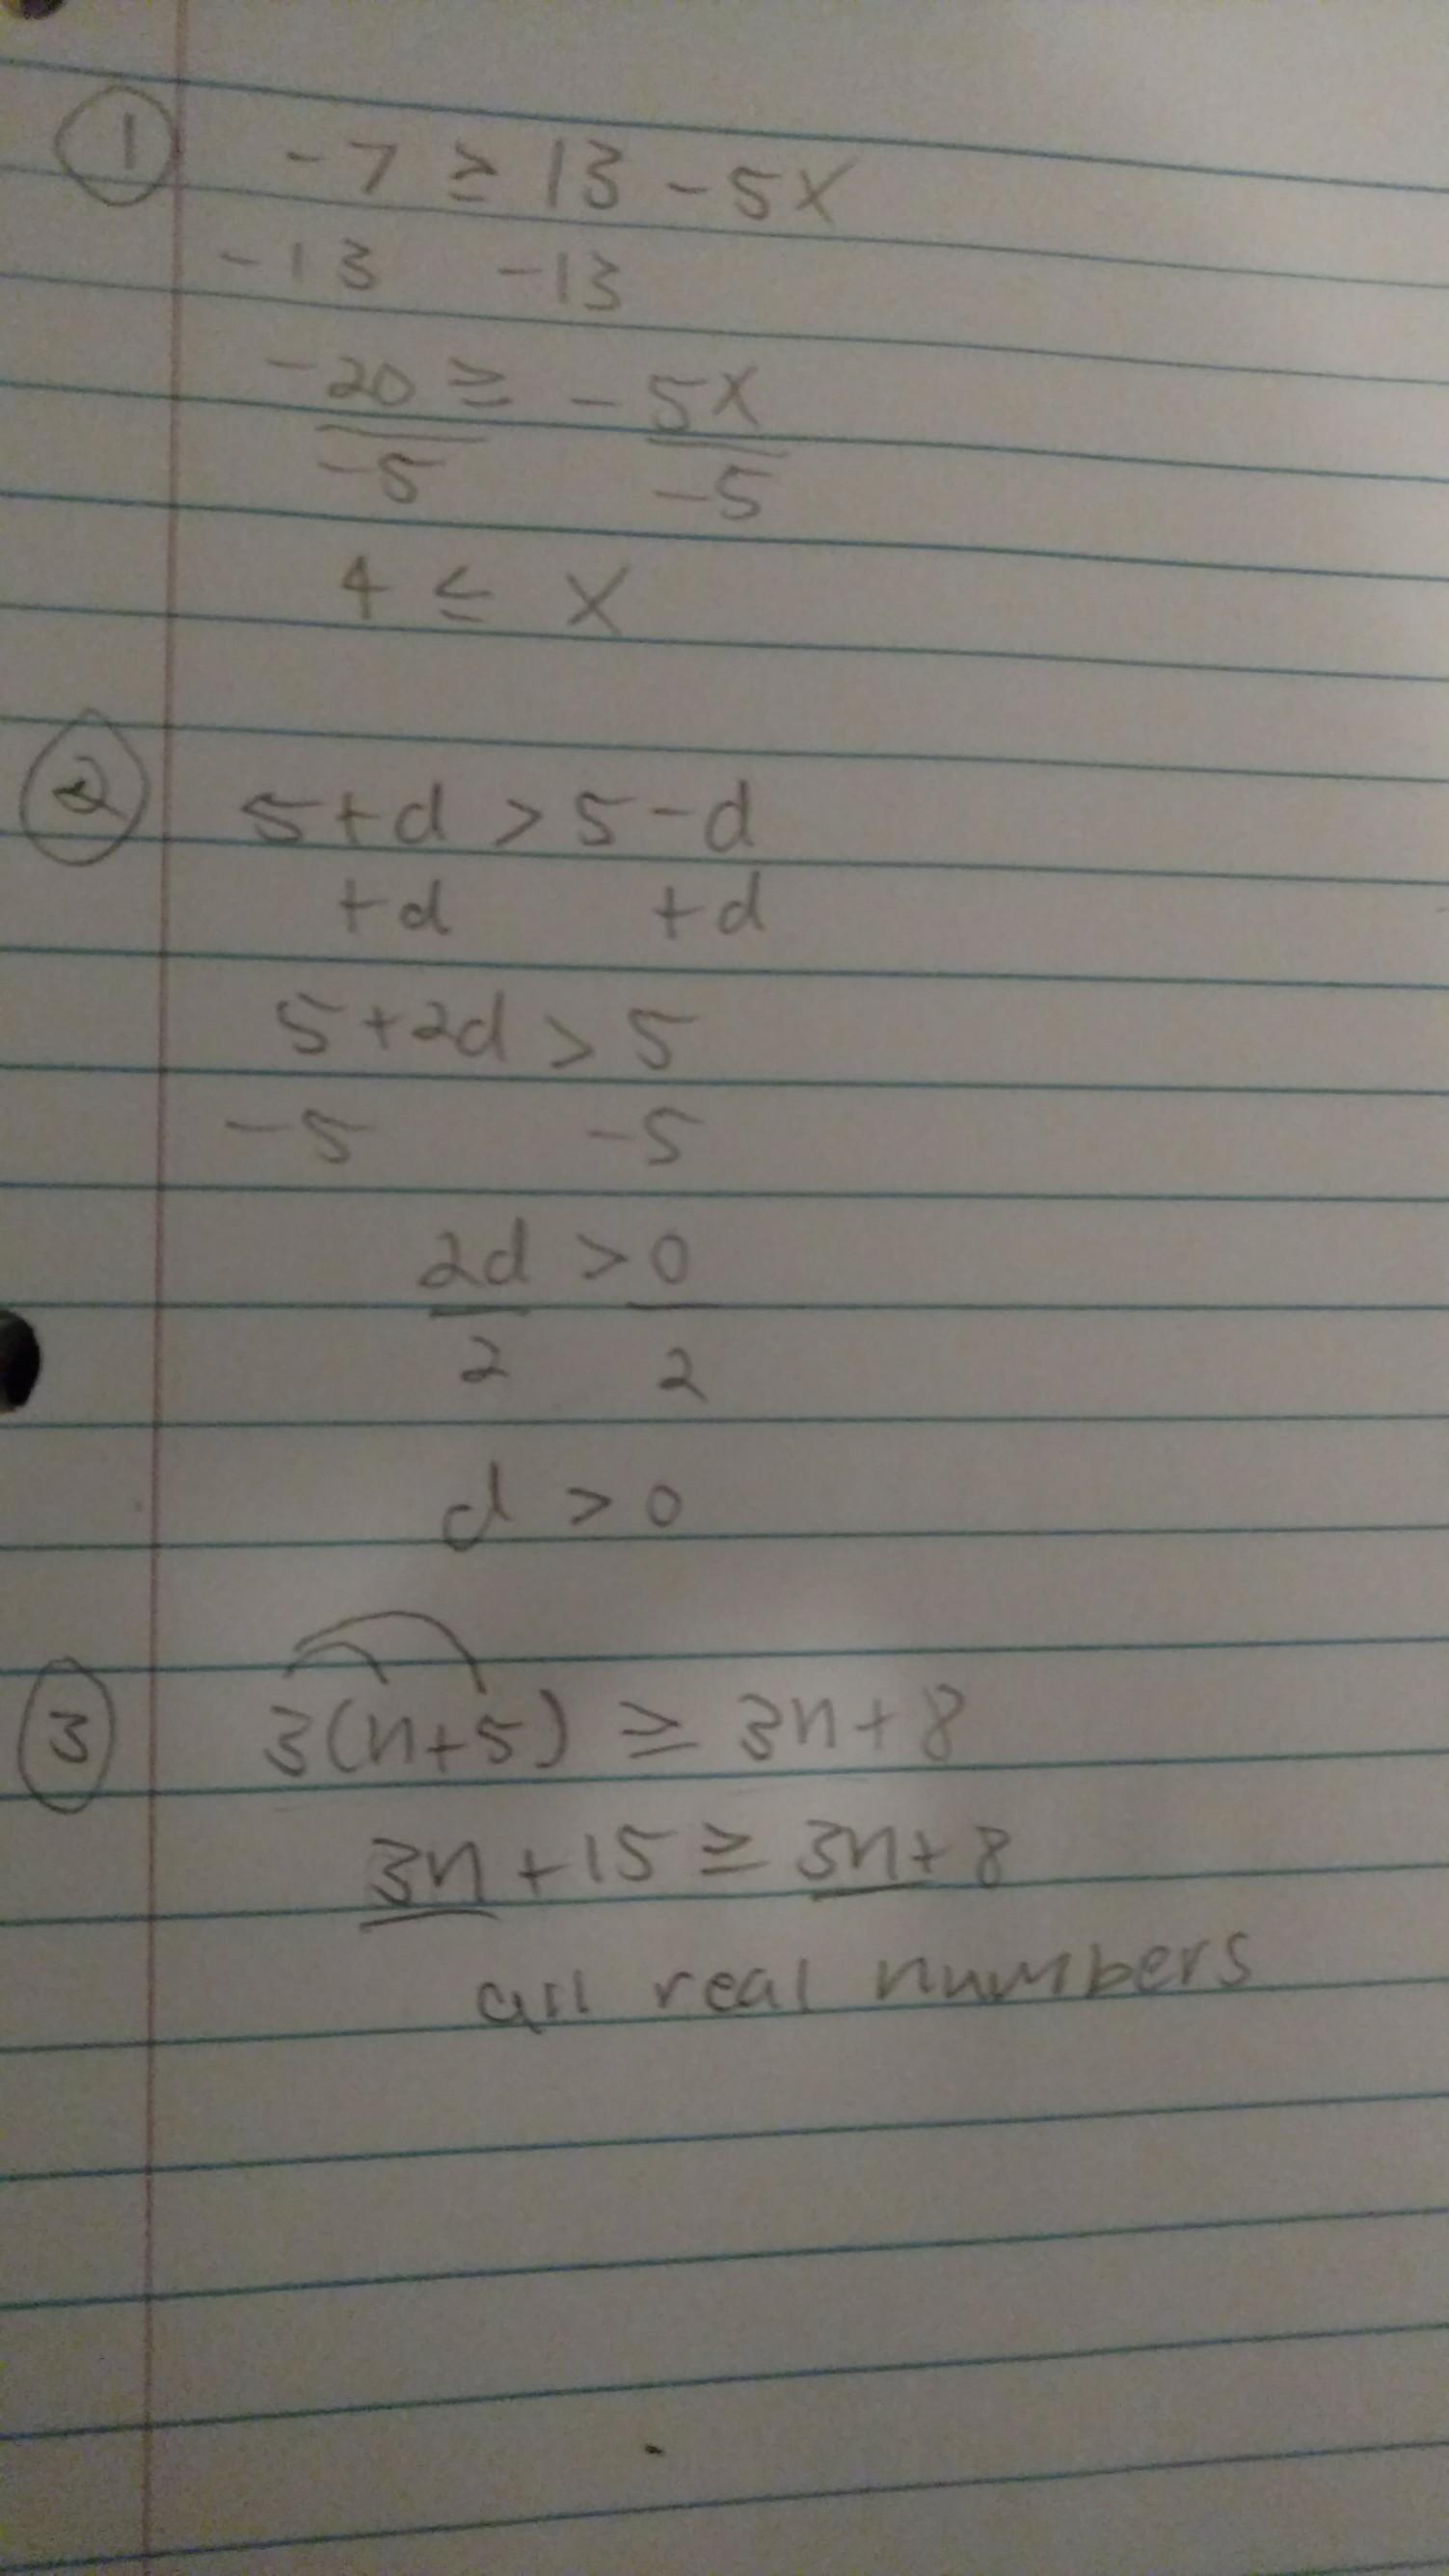 ① -7 ≥ 13 - 5x
-13 -13
-20 ≥ - 5x
-5 -5
4 ≤ x
② 5+d > 5-d
+d +d
5+2d > 5
-5 -5
2d > 0
2 2
d > 0
③ 3(n+5) ≥ 3n+8
3n+15 ≥ 3n+8
all real numbers